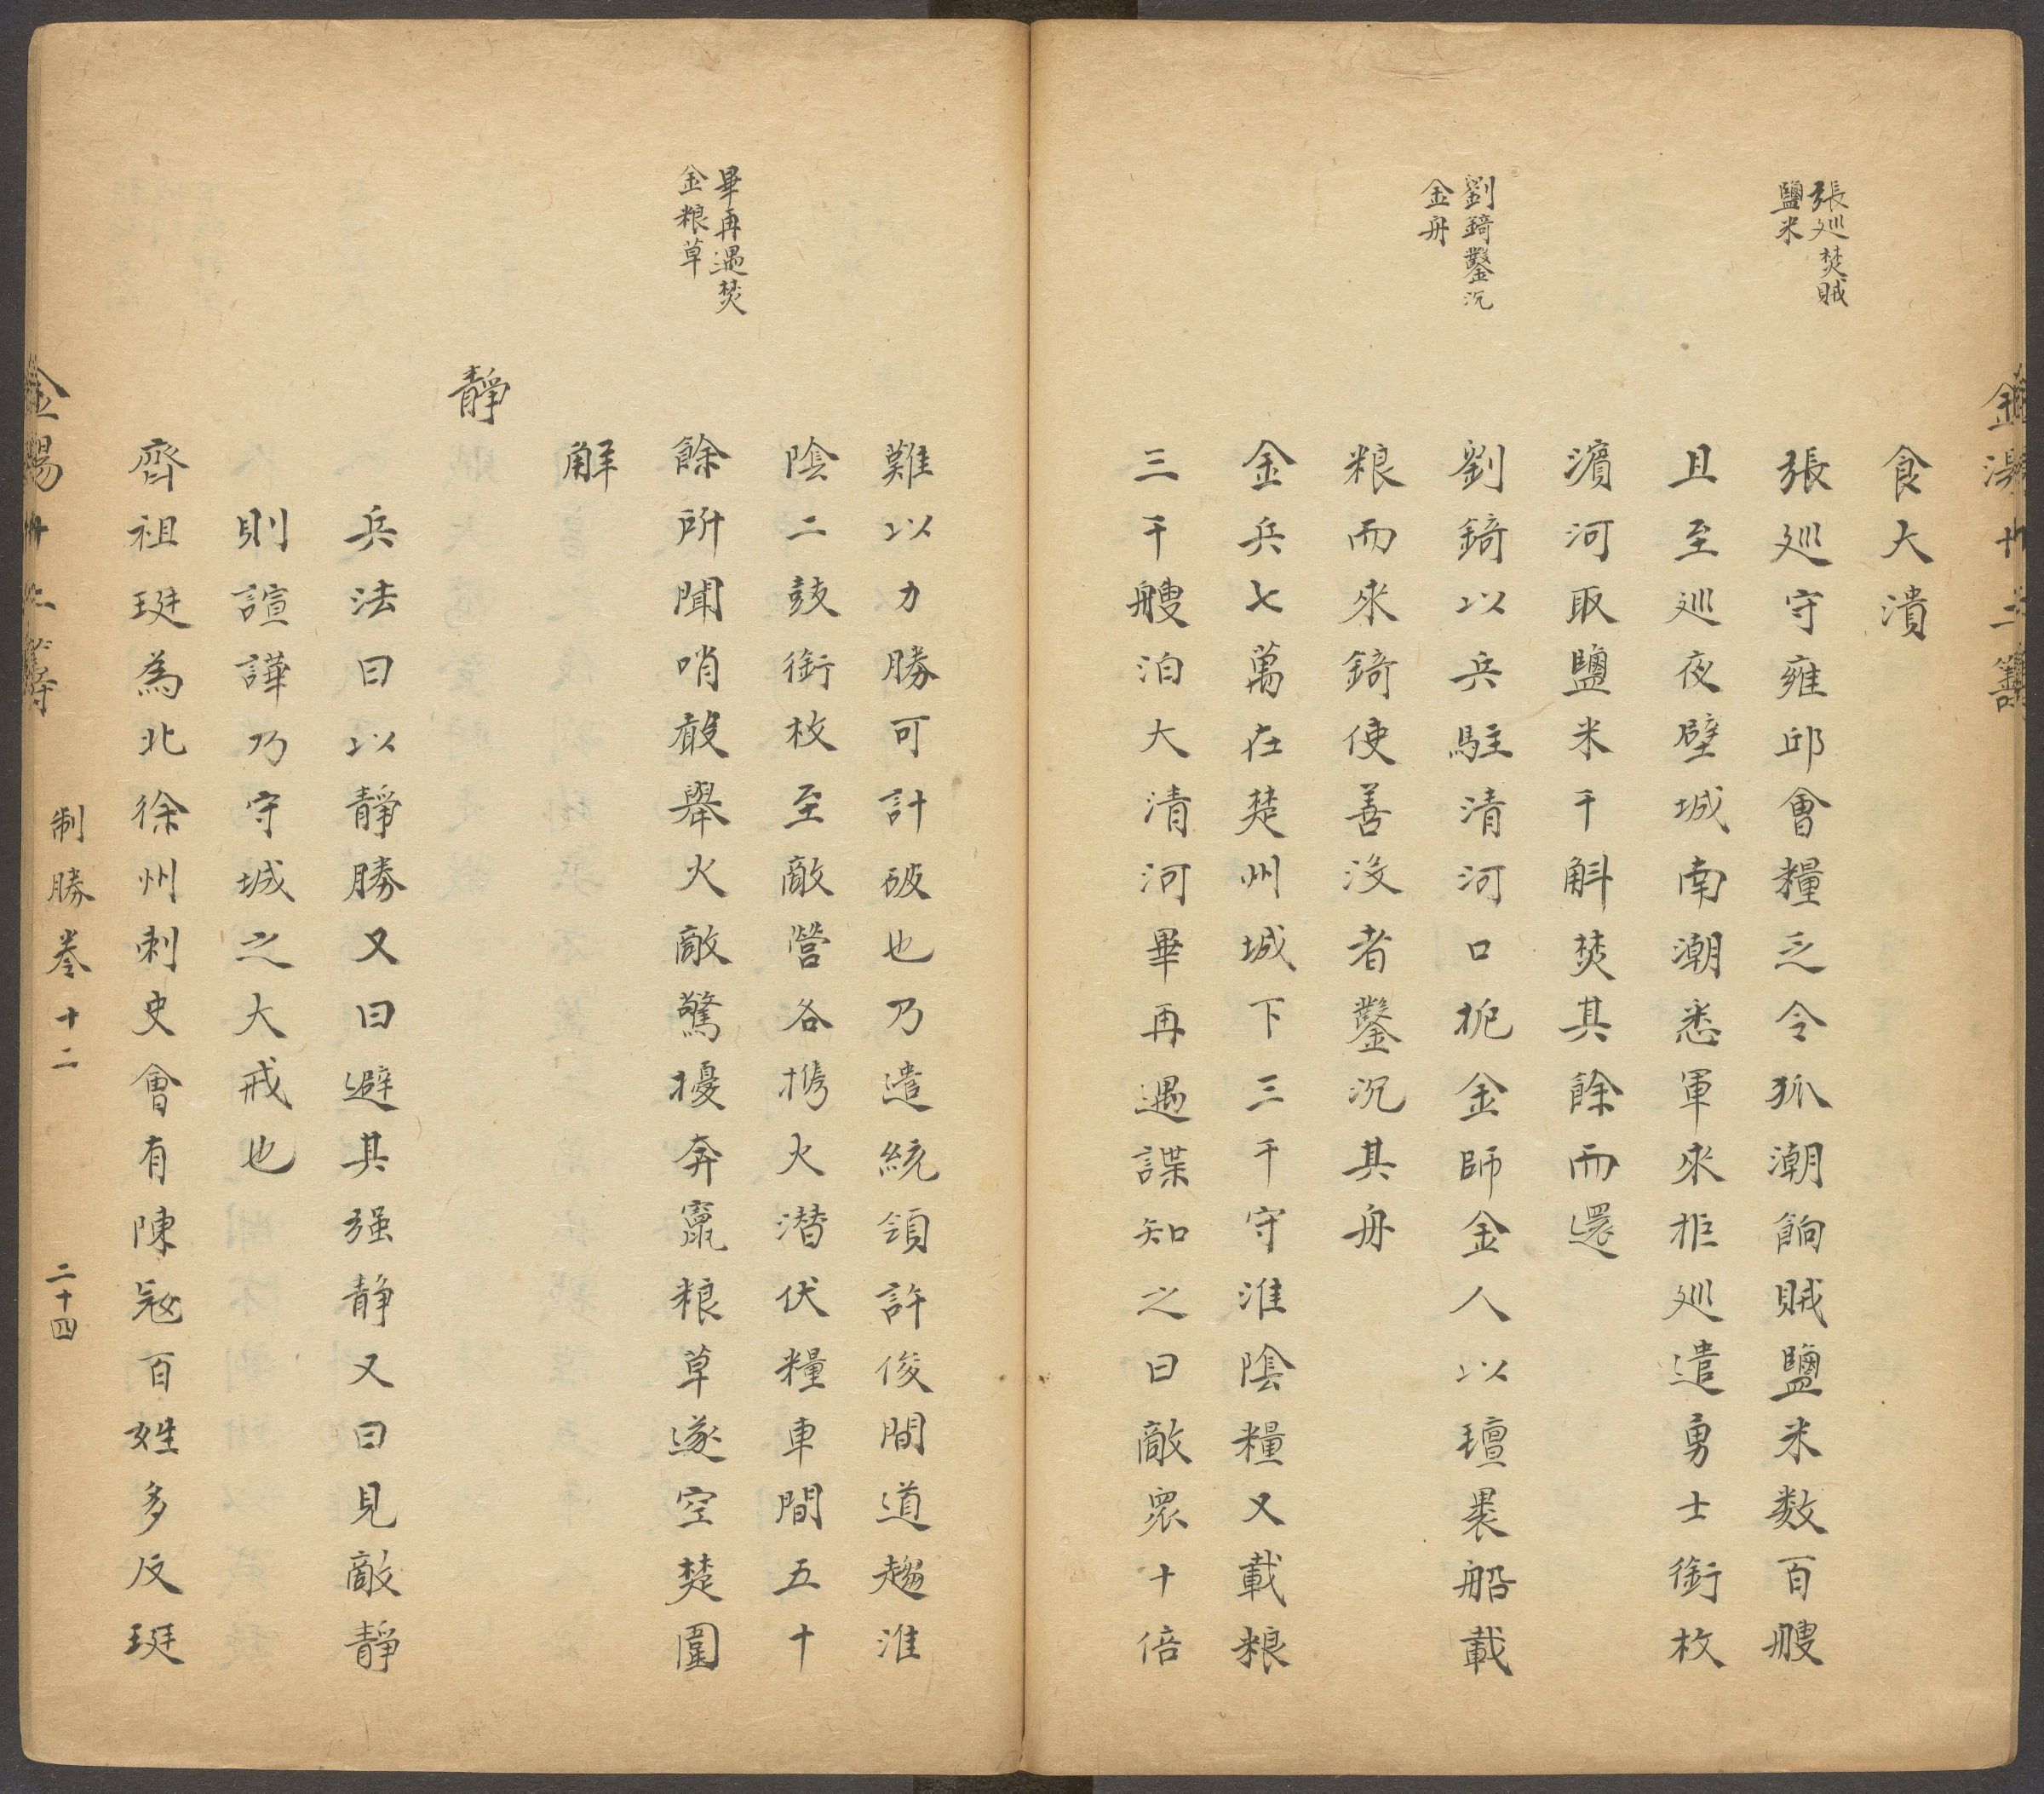 食大潰
張廵焚賊
鹽米
張廵守雍邱會糧乏令狐潮餉賊鹽米数百艘
且至廵夜壁城南潮悉軍來拒廵遣勇士銜枚
濵河取鹽米千斛焚其餘而還
劉錡鑿沉
金舟
劉錡以兵駐清河口扼金師金人以氊裹船載
粮而來錡使善沒者鑿沉其舟
金兵七萬在楚州城下三千守淮隂糧又載粮
三千艘泊大清河畢再遇諜知之曰敵眾十倍
難以力勝可計破也乃遣統領許俊間道趨淮
隂二鼓銜枚至敵營各携火潜伏糧車間五十
畢再遇焚
金粮草
餘所聞哨聲舉火敵驚擾奔竄粮草遂空楚圍
解
靜
兵法曰以靜勝又曰避其强静又曰見敵靜
則諠譁乃守城之大戒也
齊祖珽為北徐州刺史會有陳宼百姓多反珽
制勝卷十二
二十四